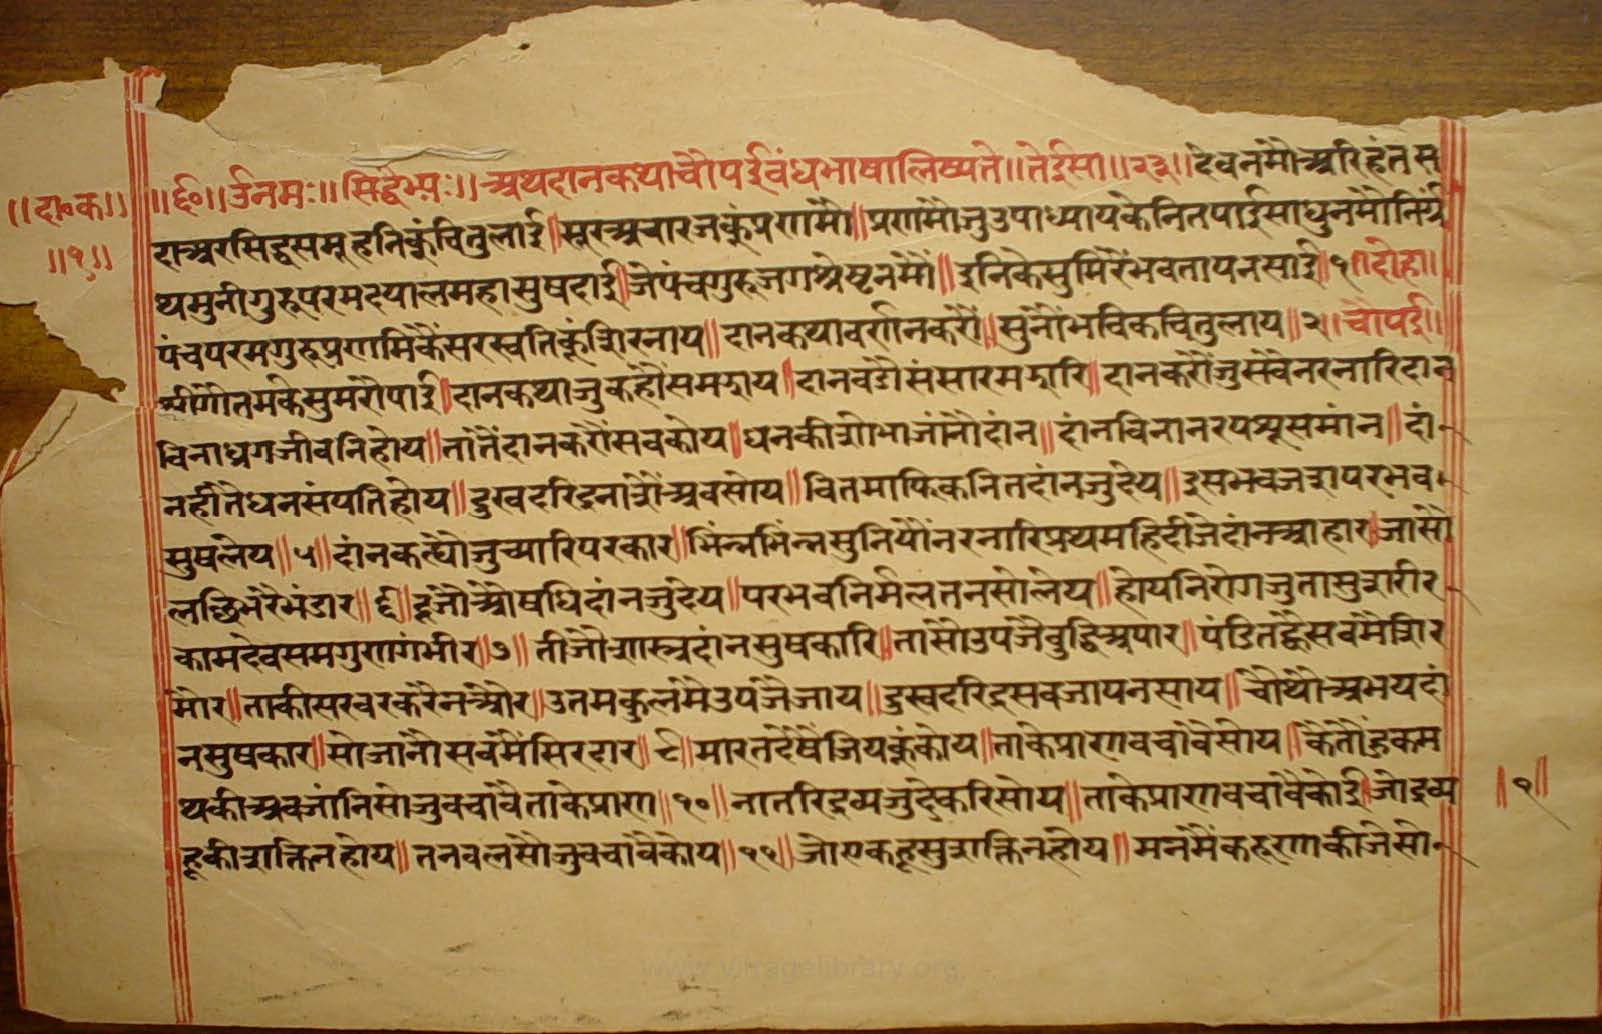 ॥दा॰क॥ ॥६०॥ॐनमः॥सिद्धेभ्यः॥अथदानकथाचौपईबंधभाषालिष्यते॥तेईसा॥२३॥देवनमौअरिहंतस
॥१॥
दाअरसिद्धसमूहनिकुंचितुलाई॥सूरअचारजकुंप्रणमौं॥प्रणमौजुउपाध्यायकेनितपाईसाधुनमौनिर्ग्रं
थमुनीगुरूपरमदयालमहासुषदाई॥जेपंचगुरूजगश्रेष्टनमौं॥इनिकेसुमिरैंभवतापनसाई॥१॥दोहा॥
पंचपरमगुरूप्रणमिकैंसरस्वतिकुंशिरनाय॥दानकथावर्णनकरौं॥सुनौंभविकचितुलाय॥२॥चौपई॥
श्रीगौतमकेसुमरौपाई॥दानकथाजुकहौंसमझाय॥दानवडौसंसारमझारि॥दानकरौंजुसबैनरनारिदान
विनाध्रगजीवनिहोय॥तांतैंदानकरौंसबकोय॥धनकीशोभाजांनौदांन॥दांनविनानरपशूसमांन॥दां
नहीतेधनसंपतिहोय॥दुखदरिद्रनाशैअवसोय॥वितमाफिकनितदांनजुदेय॥इसभवजशपरभव
सुषलेय॥५॥दांनकह्यौजुच्यारिपरकार॥भिंन्नभिंन्नसुनियौंनरनारिप्रथमहिदीजेदांनआहार॥जासौ
लछिभरैभंडार॥६॥दूजौऔषधिदांनजुदेय॥परभवनिर्मलतनसोलेय॥होयनिरोगजुतासुशरीर
कामदेवसमगुणगंभीर॥७॥तीजौशास्त्रदांनसुषकारि॥तासौउपजैबुद्धिअपार॥पंडितव्हैसबमैशिर
मोर॥ताकीसरवरकरैनऔर॥उतमकुलमेउपजैजाय॥दुखदरिद्रसबजापनसाय॥चौथौअभयदां
नसुषकार॥सोजानौसबमैंसिरदार॥८॥मारतदेषैजियकूंकोय॥ताकेप्राणबचावैसोय॥कैतौहुकम
थकीअवजांनिसोजुबचावैताकेप्राण॥१०॥नातरिद्रव्यजुदेकरिसोय॥ताकेप्राणबचावैकोई॥जोद्रव्य
॥१॥
हूकीशक्तिनहोय॥तनबलसौजुबचावैकोय॥११॥जोएकहूसुशक्तिनहोय॥मनमैंकरूणाकीजेसो